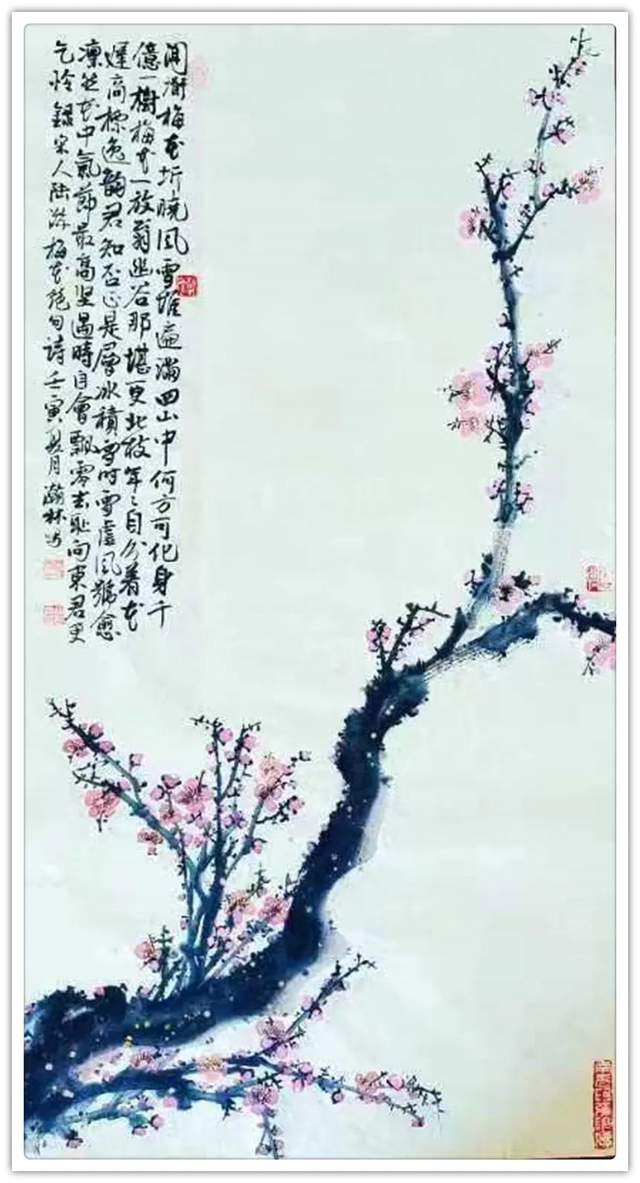 闻樹梅花坼曉风雪堆遍满四山中何方可化身千
億一樹梅花一放翁幽谷那堪更北枝年々自分着花
遲高標逸韻君知否正是層冰積雪时雪虐风號愈
凛然花中氣節最高坚過時自會飄零去耻向東君更
乞怜錄宋人陆游梅花绝句诗壬寅夏月瀚林书